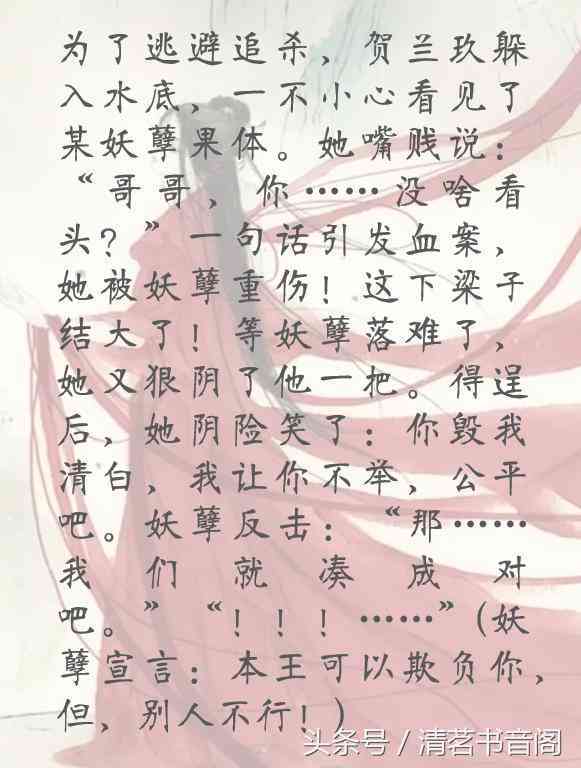 为了逃避追杀，贺兰玖躲
入水底，一不小心看见了
某妖孽果体。她嘴贱说：
“哥哥，你……没啥看
头？”一句话引发血案，
她被妖孽重伤！这下梁子
结大了！等妖孽落难了，
她又狠阴了他一把。得逞
后，她阴险笑了：你毁我
清白，我让你不举，公平
吧。妖孽反击：“那……
我们就凑成对
吧。”“！！！……”（妖
孽宣言：本王可以欺负你，
但，别人不行！）
头条号／清茗书音阁